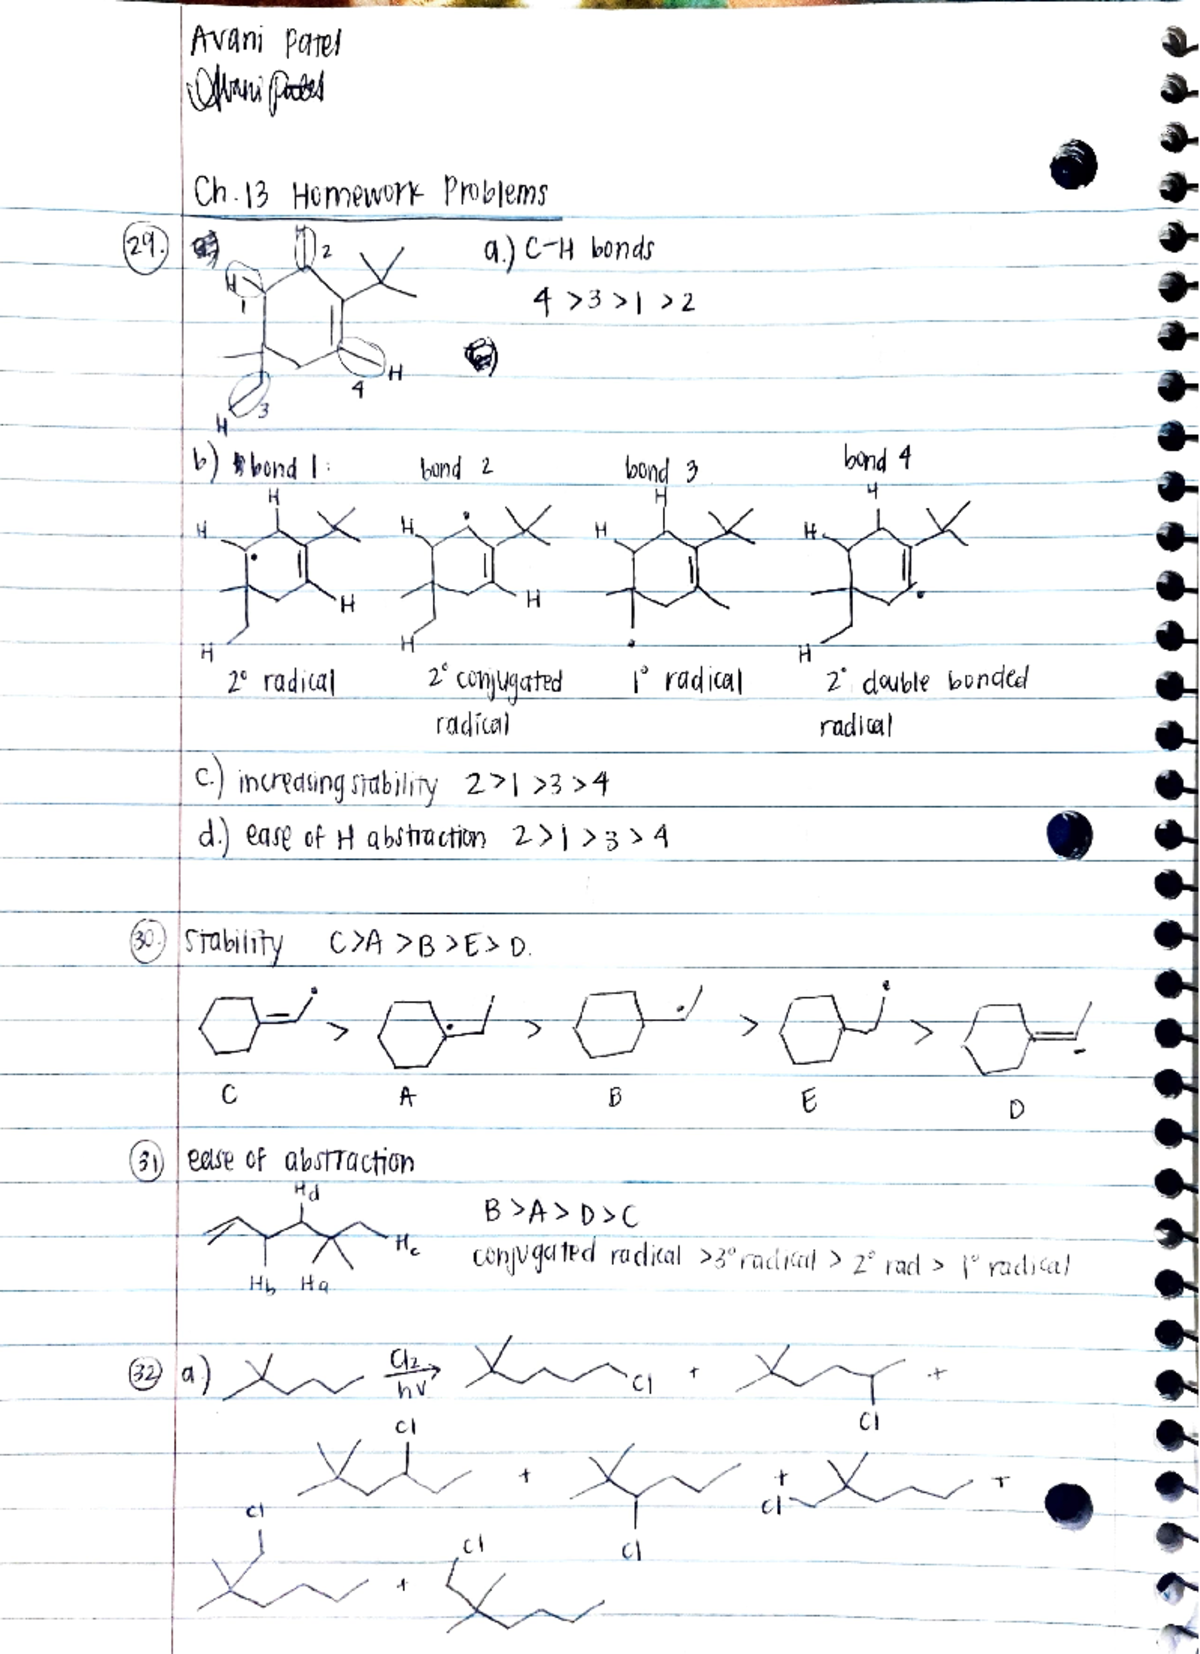 Avani Patel
Avani Patel
Ch. 13 Homework Problems
29.
H 2
a.) C-H bonds
H
1
4 > 3 > 1 > 2
H
4
3
H
b) bond 1: bond 2 bond 3 bond 4
H H H
H H H H
H H
H H H
2° radical 2° conjugated 1° radical 2° double bonded
radical radical
c.) increasing stability 2>1>3>4
d.) ease of H abstraction 2>1>3>4
30. Stability C>A>B>E>D.
> > > >
C A B E D
31 ease of abstraction
Hd
B>A>D>C
Hc
conjugated radical >3° radical > 2° rad > 1° radical
Hb Ha
32 a.) Cl2 + +
hν Cl
Cl
Cl
+ + +
Cl
Cl Cl
Cl
+